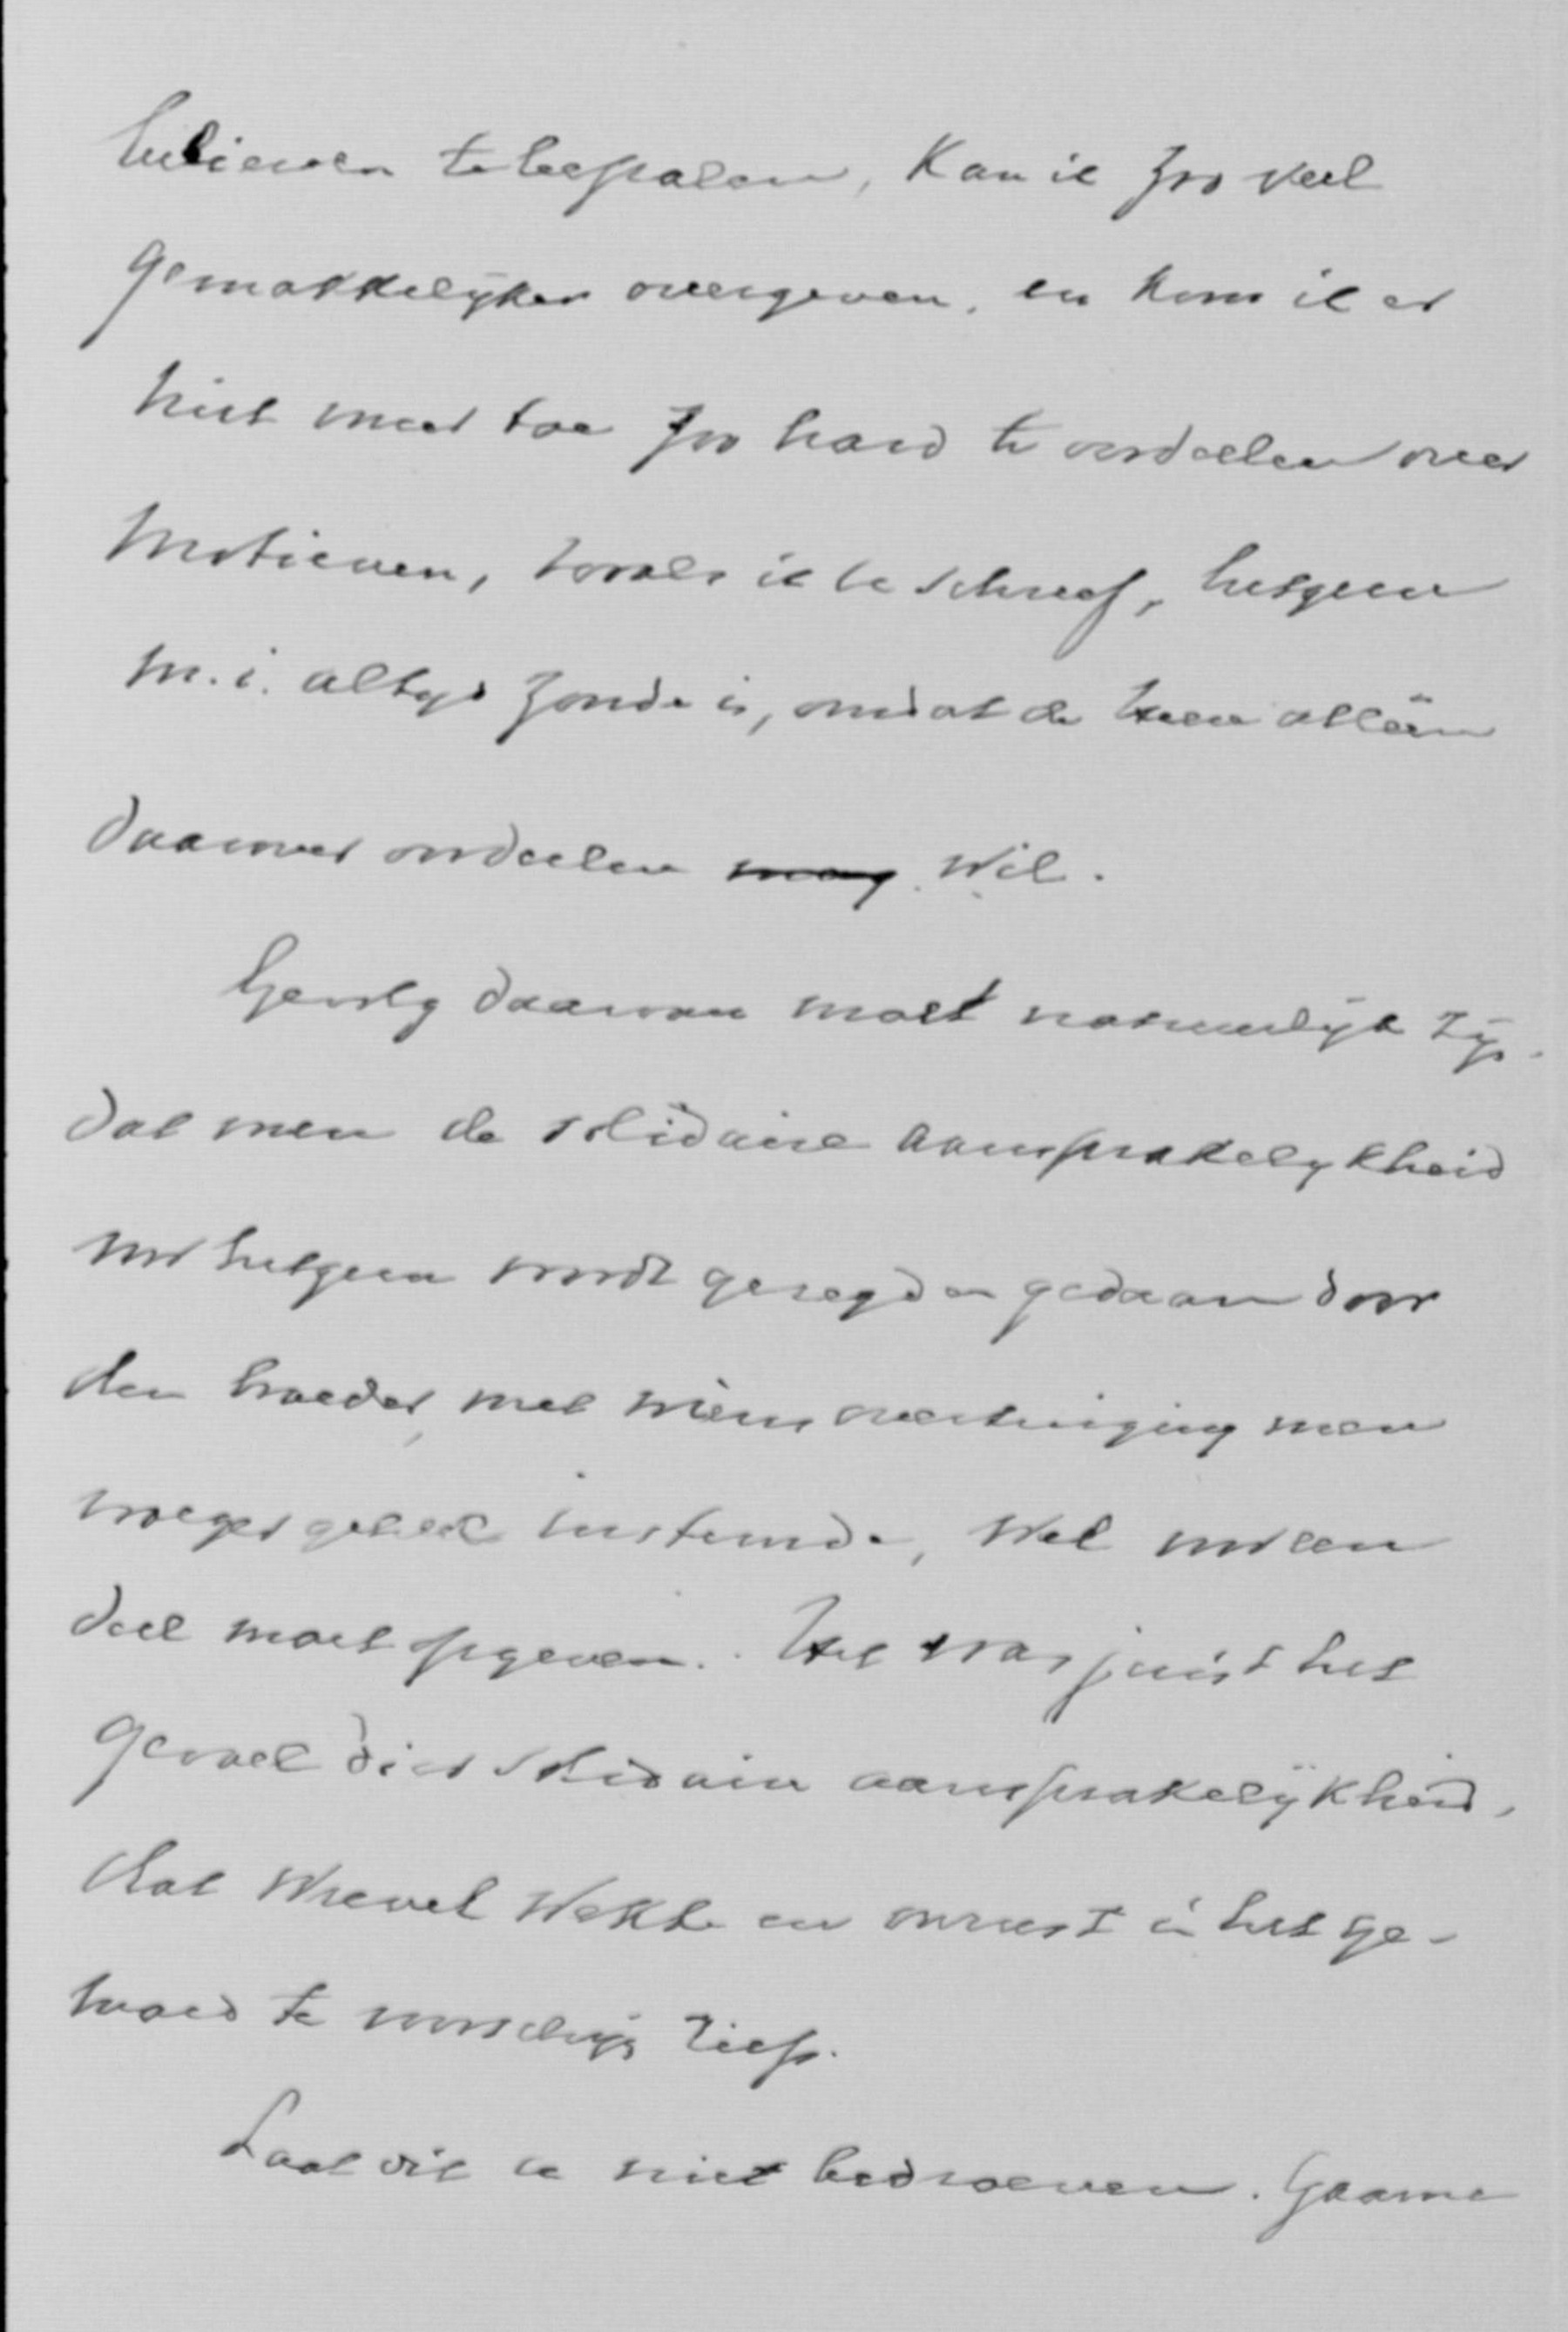 te bepalen, kan ik zoo veel
gemakkelijker overgeven, en kom ik er
niet meer toe zoo hard te oordeelen over
motieven, zooals ik U schreef, hetgeen
m.i. altijd zonde is, omdat de Heere alleen
daarover oordeelen mag wil.
Gevolg daarvan moet natuurlijk zijn
dat men de solidaire aansprakelijkheid
voor hetgeen wordt gezegd en gedaan door
den broeder, met wiens overtuiging men
vroeger geheel instemde, wel voor een
deel moet opgeven. Het was juist het
gevoel dier solidaire aansprakelijkheid,
dat wrevel wekte en onrust in het ge-
moed te voorschijn riep.
Laat dit U niet bedroeven. Gaarne